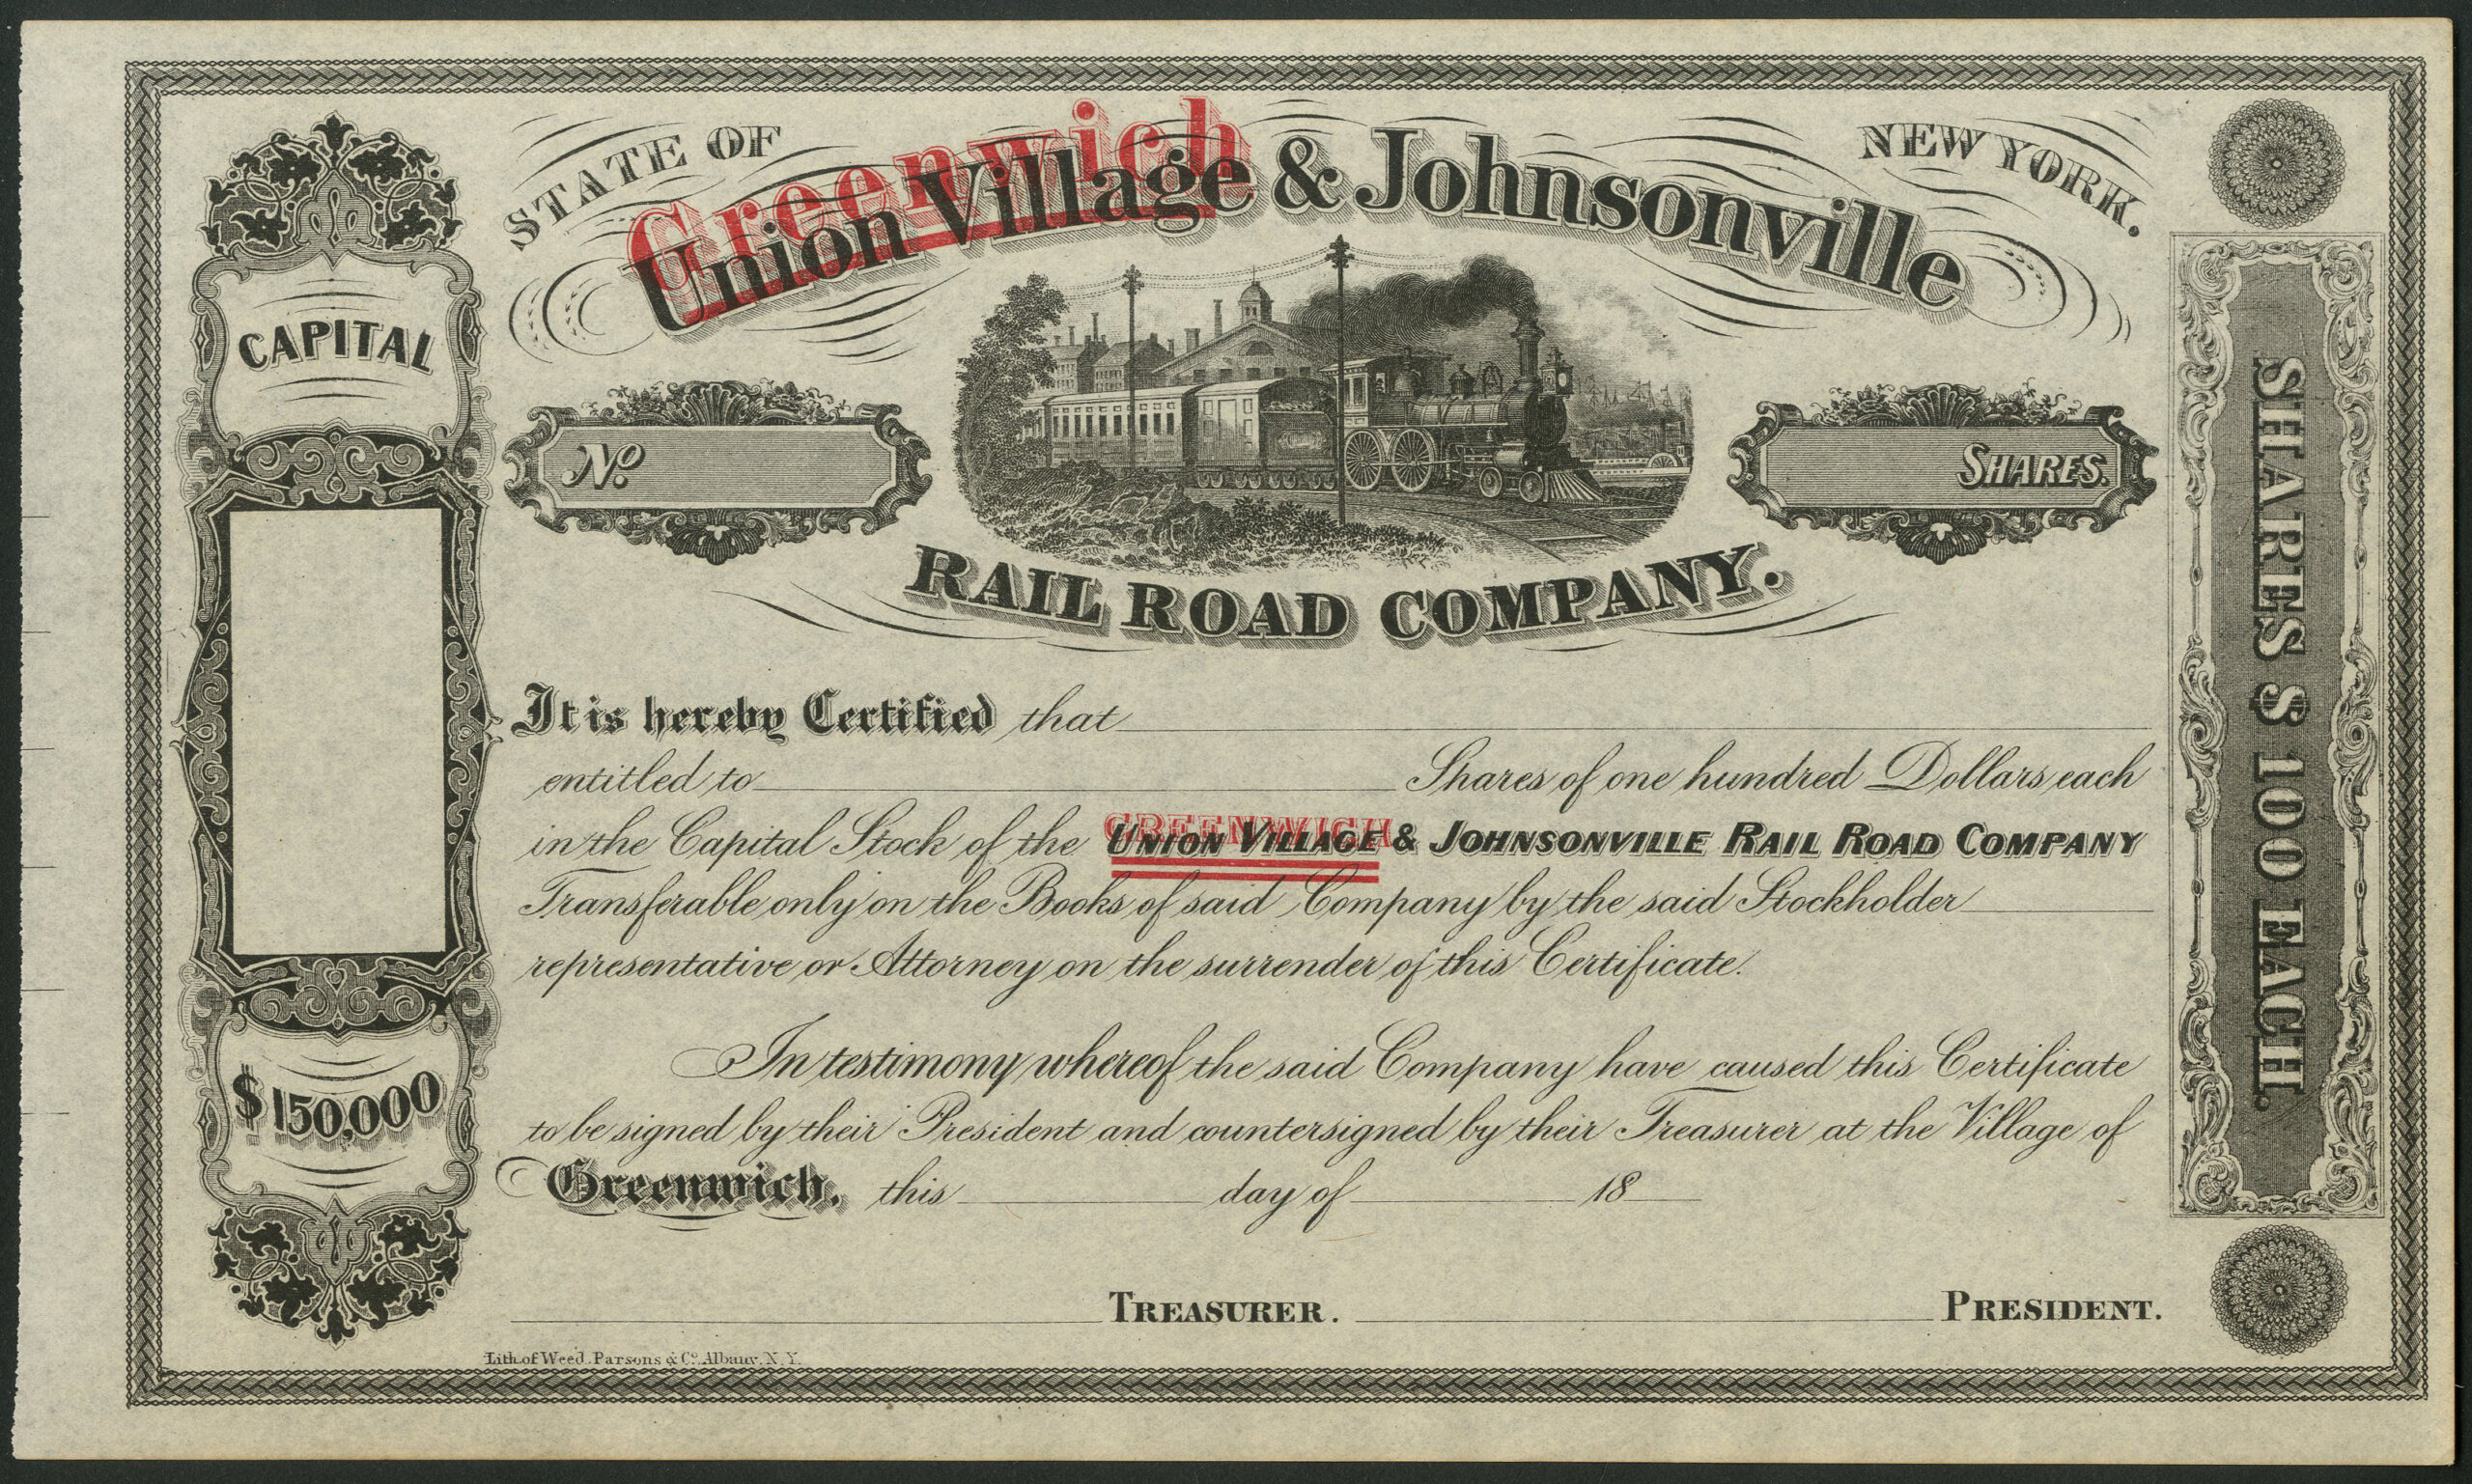 STATE OF
NEW YORK.
Greenwich
Union Village & Johnsonville
RAIL ROAD COMPANY.
CAPITAL
$150,000
No.
SHARES.
SHARES $100 EACH.
It is hereby Certified that
entitled to Shares of one hundred Dollars each
GREENWICH
in the Capital Stock of the UNION VILLAGE & JOHNSONVILLE RAIL ROAD COMPANY
Transferable only on the Books of said Company by the said Stockholder
representative or Attorney on the surrender of this Certificate.
In testimony whereof the said Company have caused this Certificate
to be signed by their President and countersigned by their Treasurer at the Village of
Greenwich, this day of 18
TREASURER. PRESIDENT.
Lith. of Weed, Parsons & Co. Albany, N.Y.